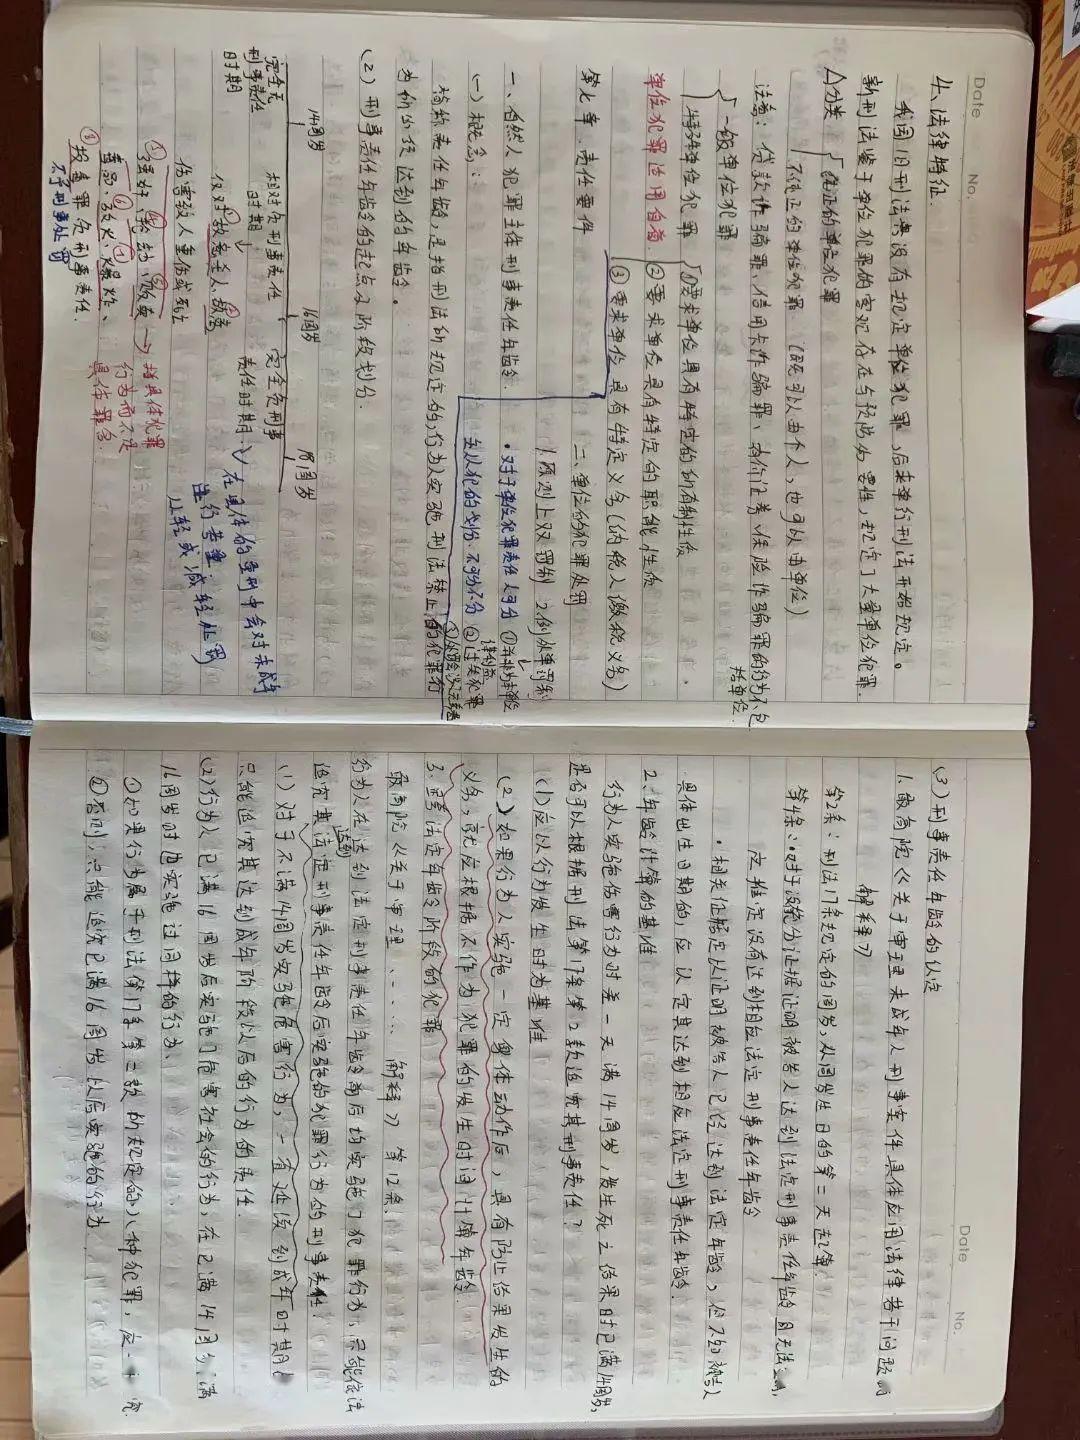 Date
No.
4、法律特征.
我国旧刑法典没有规定单位犯罪,后来单行刑法开始规定。
新刑法鉴于单位犯罪的客观存在与预防必要性,规定了大量单位犯罪.
△分类
纯正的单位犯罪
不纯正的单位犯罪(既可以由个人,也可以由单位)
注意:贷款诈骗罪、信用卡诈骗罪、有价证券、保险诈骗罪的行为不包
括单位.
一般单位犯罪
特殊单位犯罪
①要求单位具有特定的所有制性质.
②要求单位具有特定的职能性质
③要求单位具有特定义务(纳税人缴税义务)
单位犯罪适用自首
第七章、责任要件
二、单位的犯罪处罚
1.原则上双罚制 2.例外单罚制
·对于单位犯罪责任人可分
主从犯的划分.不可分不分
②过失犯罪
一、自然人犯罪主体刑事责任年龄.
(一)概念:
简称责任年龄,是指刑法所规定的,行为人实施刑法禁止的犯罪行
为所必须达到的年龄。
(2)刑事责任年龄的起点及阶段划分.
14周岁
16周岁
18周岁
完全无
刑事责任
时期
相对负刑事责任
时期
完全负刑事
责任时期
仅对故意杀人、故意
伤害致人重伤或死亡
强奸、抢劫、贩卖
毒品、放火、爆炸、
投毒罪负刑事责任.
不予刑事处罚
→指具体犯罪
行为而不是
具体罪名.
在具体的量刑中会对未成年
进行考量:
从轻或减轻处罚
Date
No.
(3)刑事责任年龄的认定
1.最高院《关于审理未成年人刑事案件具体应用法律若干问题的
解释》
第2条:刑法17条规定的周岁,从周岁生日的第二天起算.
第4条:·对于没充分证据证明被告人达到法定刑事责任年龄且无法查明,
应推定没有达到相应法定刑事责任年龄
·相关证据足以证明被告人已经达到法定年龄,但不知被告人
具体出生日期的,应认定其达到相应法定刑事责任年龄.
2.年龄计算的基准
行为人实施伤害行为时差一天满14周岁,发生死亡结果时已满14周岁,
是否可以根据刑法第17条第2款追究其刑事责任?
(1)应以行为发生时为基准
(2)如果行为人实施一定身体动作后,具有防止结果发生的
义务,就应根据不作为犯罪的发生时间计算年龄.
3.跨法定年龄阶段的犯罪
最高院《关于审理......解释》第12条.
行为人在达到法定刑事责任年龄前后均实施了犯罪行为,只能依法
追究其达到法定刑事责任年龄后实施的犯罪行为的刑事责任.
(1)对于不满14周岁实施危害行为,一直延续到成年时期
只能追究其达到成年阶段以后的行为的责任.
(2)行为人已满16周岁后实施了危害社会的行为,在已满14周岁、满
16周岁时也实施过同样的行为、
①如果行为属于刑法第17条第二款所规定的八种犯罪,应一并究.
②否则,只能追究已满16周岁以后实施的行为.